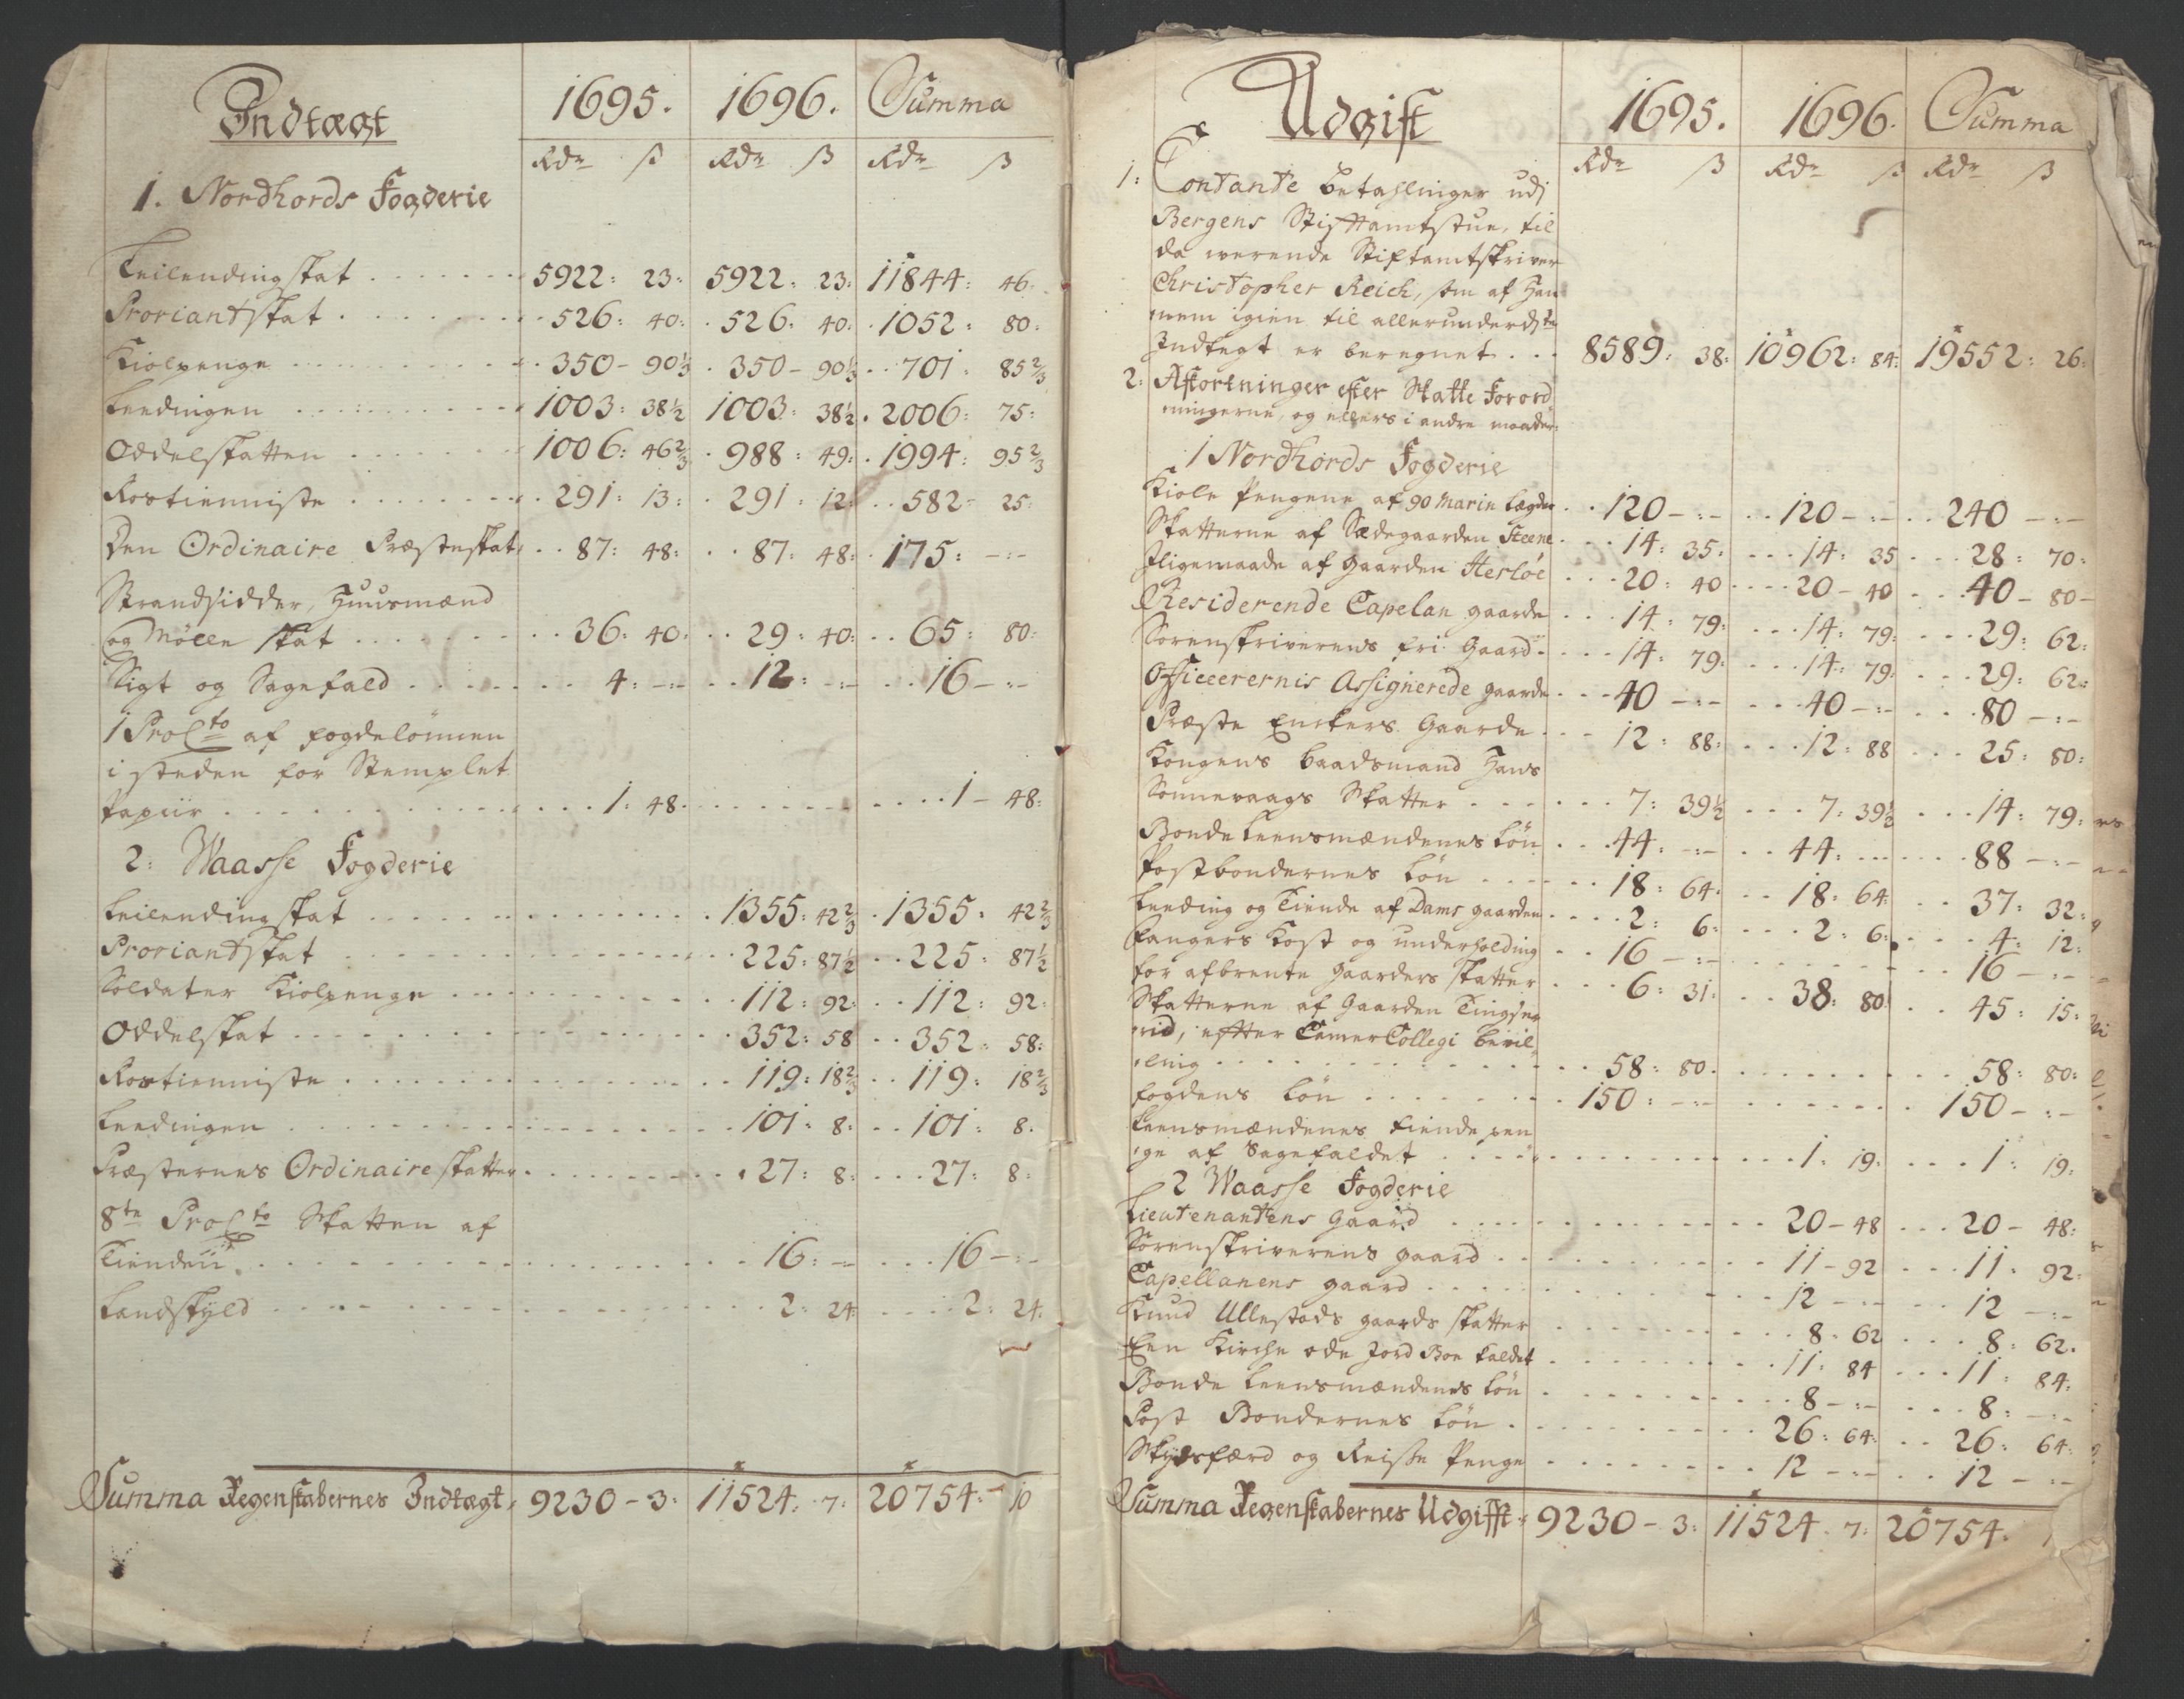 Indtægt 1695. 1696. Summa
Rdr ß Rdr ß Rdr ß
1. Nordhords Fogderie
Leilendingskat . . . . . . 5922: 23: 5922: 23: 11844: 46:
Proviantskat . . . . . . 526: 40: 526: 40: 1052: 80:
Kiolpenge . . . . . . 350 - 90⅓ 350 - 90⅓ 701: 85⅔
Leedingen . . . . . . 1003: 38½ 1003: 38½ 2006: 75:
Oddelskatten . . . . . . 1006: 46⅔ 988: 49: 1994: 95⅔
Rostienniste . . . . . . 291: 13: 291: 12: 582 - 25:
Den Ordinaire Præsteskat 87: 48: 87: 48: 175: -:-
Strandsidder, Huusmænd
og Mølle skat . . . . . . 36: 40: 29: 40: 65: 80:
Sigt og Sagefald . . . . . . 4: -:- 12: -:- 16 -:-
1 ProCto af fogdelønnen
i steden for Stemplet
Papiir . . . . . . 1: 48. . . . . . . 1 - 48:
2: Waasse Fogderie
Leilendingskat . . . . . . 1355: 42⅔ 1355: 42⅔
Proviantskat . . . . . . 225: 87½ 225: 87½
Soldater Kiolpenge . . . . . . 112: 92: 112: 92:
Oddelskat . . . . . . 352: 58 352: 58:
Rostienniste . . . . . . 119: 18⅔ 119: 18⅔
Leedingen . . . . . . 101: 8: 101: 8.
Præsternes Ordinaire skatter. . . . . . 27: 8: 27: 8:
8te ProCto Skatten af
Tienden . . . . . . 16: -:- 16 -:-
Landskyld . . . . . . 2: 24: 2: 24:
Summa Regenskabernes Indtægt, 9230 - 3: 11524: 7: 20754: - 10
Udgift 1695. 1696. Summa
Rdr ß Rdr ß Rdr ß
1: Contante betahlinger udj
Bergens Stifftamtstue, til
da werende Stiftamtskriver
Christopher Reich, som af Han
nem igien til allerunderdste
Indtegt er beregnet . . . 8589: 38: 10962: 84: 19552: 26:
2: Afkortninger efter Skatte Forord
ningerne, og ellers i andre maader:
1 Nordhords Fogderie
Kiole Pengene af 90 Marin Lægder . . 120 -:- 120 -:- 240 -:-
Skatterne af Sædegaarden Steene . . . 14: 35: 14: 35 28: 70:
Iligemaade af Gaarden Herløe . . . 20: 40 20 - 40 40 - 80 -
Residerende Capelan gaarde . . . 14: 79: 14: 79: 29: 62:
Sorenskriverens fri Gaard . . . 14: 79: 14: 79: 29: 62:
Officerernis Assignerede gaarde . . . 40 -:- 40 -:- 80 -:-
Præste Enckers Gaarde . . . 12: 88: 12: 88 25: 80:
Kongens baadsmand Hans
Sonnevaags Skatter . . . . . . 7: 39½ 7: 39½ 14: 79:
Bonde Leensmændenes Løn . . . 44: -:- 44: . . . 88 -:-
Postbøndernes Løn . . . . . . 18: 64: 18: 64: 37: 32:
Leeding og Tiende af Dams gaarden . . . 2: 6: 2: 6: 4: 12:
Fangers Kost og underholding . . . 16 -:- . . . . . . 16 -:-
for afbrente Gaarders skatter . . . 6: 31: 38: 80: 45: 15:
Skatterne af Gaarden
, effter CamerCollegi bevil
ling . . . . . . 58: 80. . . . . . . 58: 80:
Fogdens Løn . . . . . . 150: -:- . . . . . . 150 -:-
Leensmændenes tiende pen
ge af Sagefaldet . . . . . . 1: 19: 1: 19:
2 Waasse Fogderie
Lieutenantens Gaard . . . . . . 20 - 48 20 - 48:
Sorenskriverens gaard . . . . . . 11 - 92 11: 92:
Capellanens gaard . . . . . . 12 -:- 12 -:-
Knud Ullestads gaards skatter . . . . . . 8: 62 8: 62.
Een Kirche øde Jord Boe kaldet . . . . . . 11: 84 11: 84:
Bonde Leensmændenes Løn . . . . . . 8 -:- 8: -:-
Post Bøndernes Løn . . . . . . 26: 64: 26: 64:
Skydsfærd og Reisse Penge . . . . . . 12 -:- 12 -:-
Summa Regenskabernes Udgifft: 9230 - 3: 11524: 7: 20754: